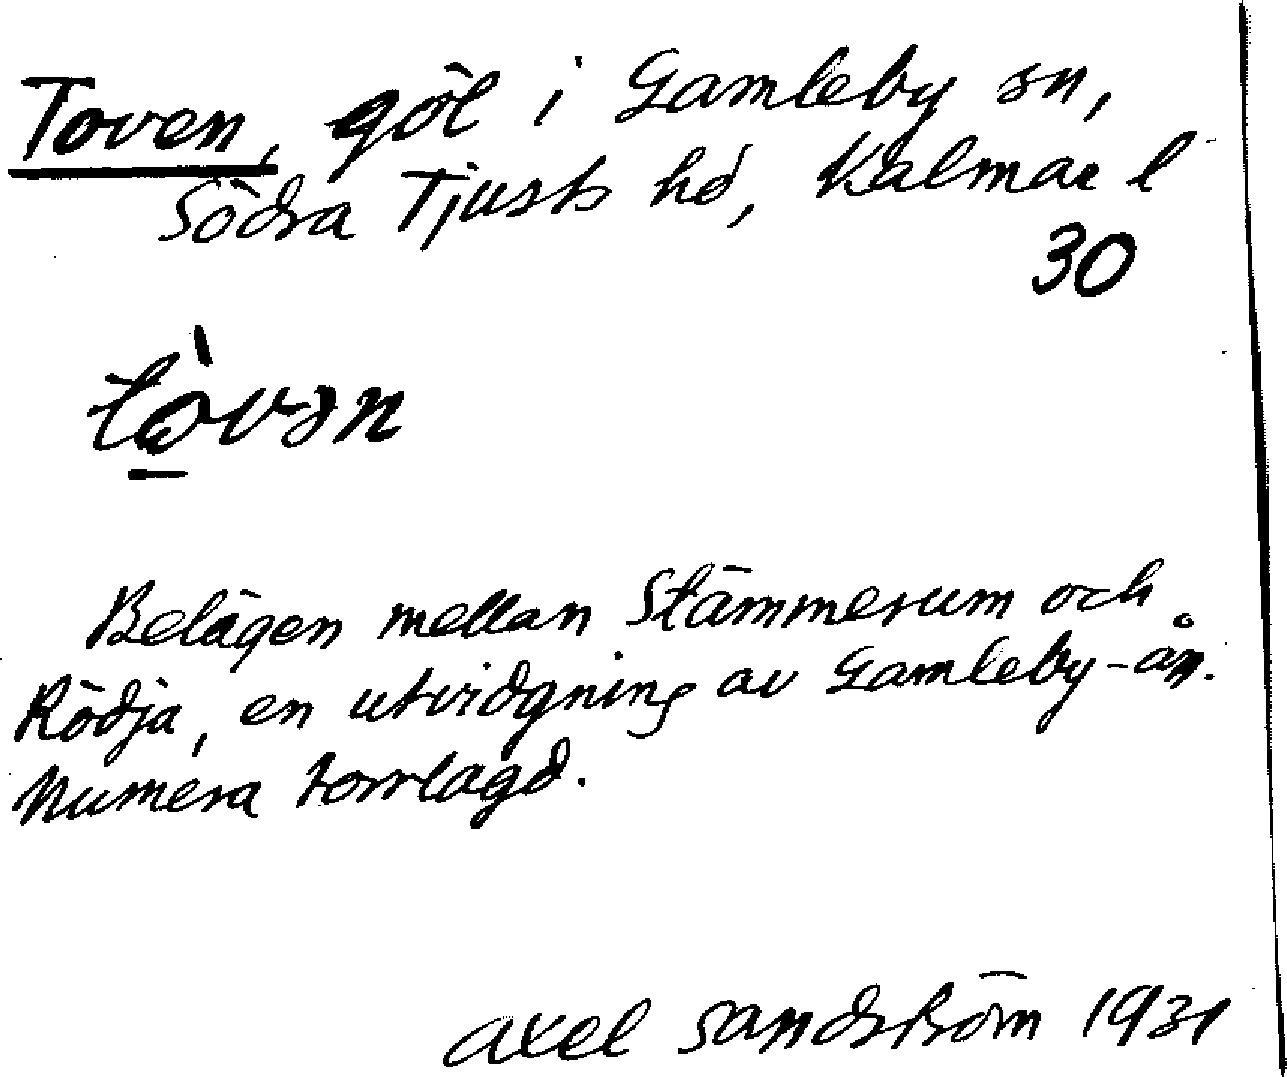 Toven, göl i Gamleby sn,
Södra Tjusts hd, Kalmar l
30
tò̠vən
Belägen mellan Stämmerum och
Rödja, en utvidgning av Gamleby-ån.
Numera torrlagd.
Axel Sandström 1931